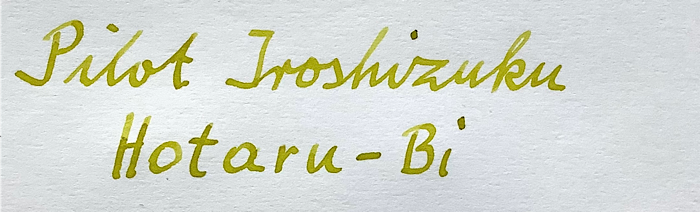 Pilot Iroshizuku
Hotaru-Bi